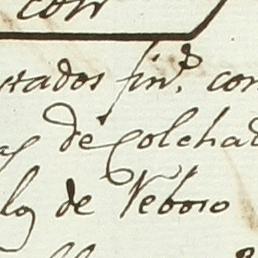 con
stados fin.º con
as de Colchad
los de Veboso